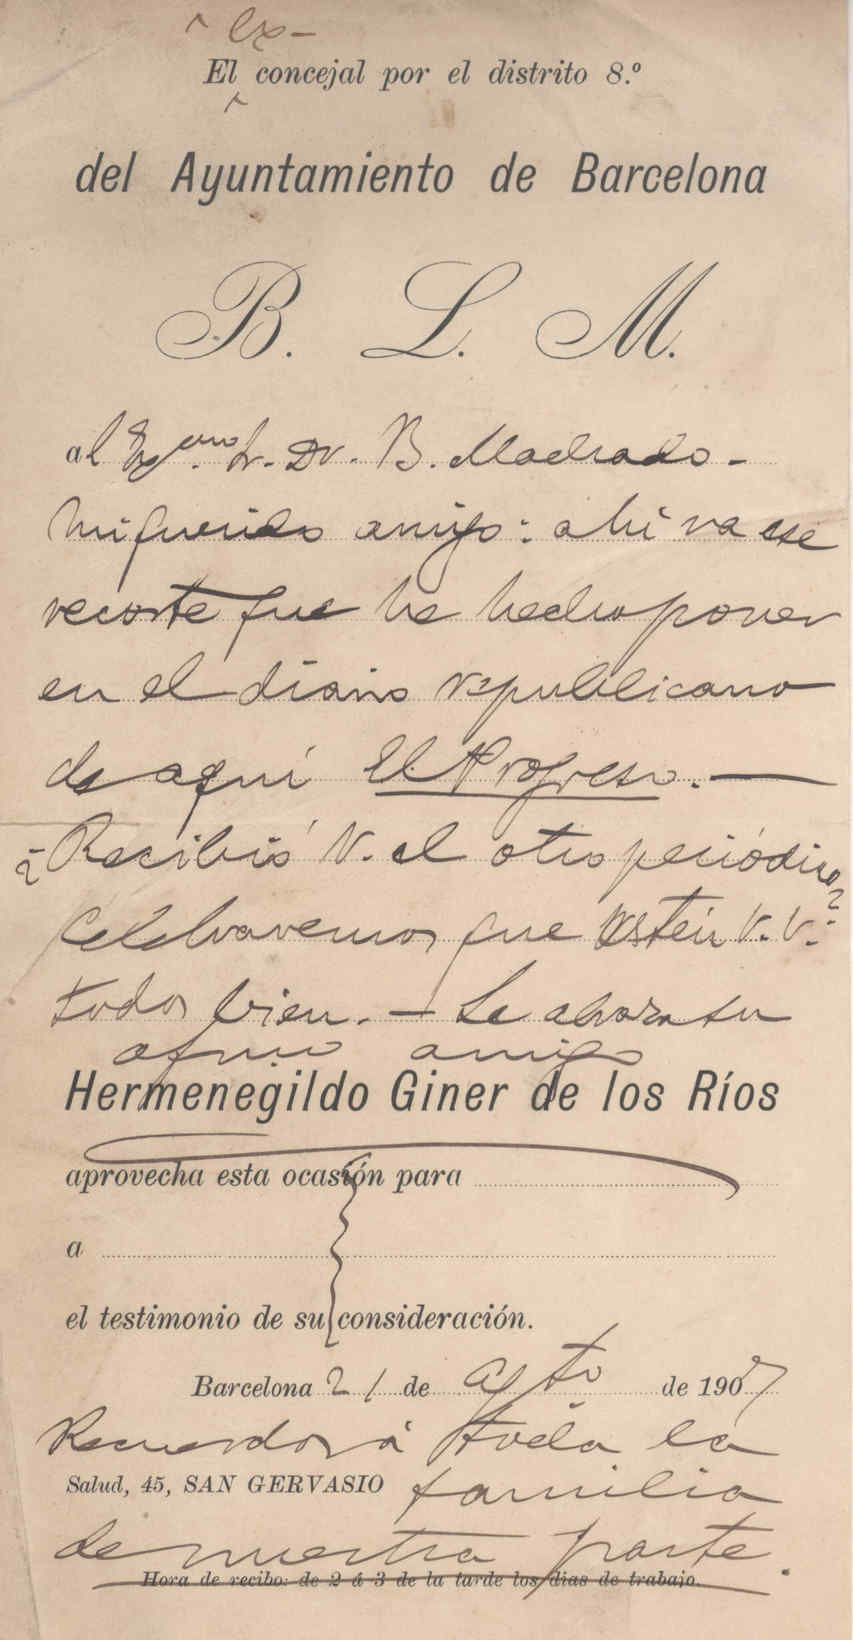 ex-
El concejal por el distrito 8.º
del Ayuntamiento de Barcelona
B. L. M.
al Exmo. Sr. Dr. B. Machado -
Mi querido amigo: ahí va ese
recorte que he hecho poner
en el diario republicano
de aquí El Progreso. —
¿Recibió V. el otro periódico?
Celebraremos que estén V.V.
todos bien. — Le abraza su
afmo amigo
Hermenegildo Giner de los Ríos
aprovecha esta ocasión para
a
el testimonio de su consideración.
Barcelona 21 de Agto de 1907
Recuerdos á toda la
Salud, 45, SAN GERVASIO familia
de nuestra parte.
Hora de recibo: de 2 á 3 de la tarde los días de trabajo.